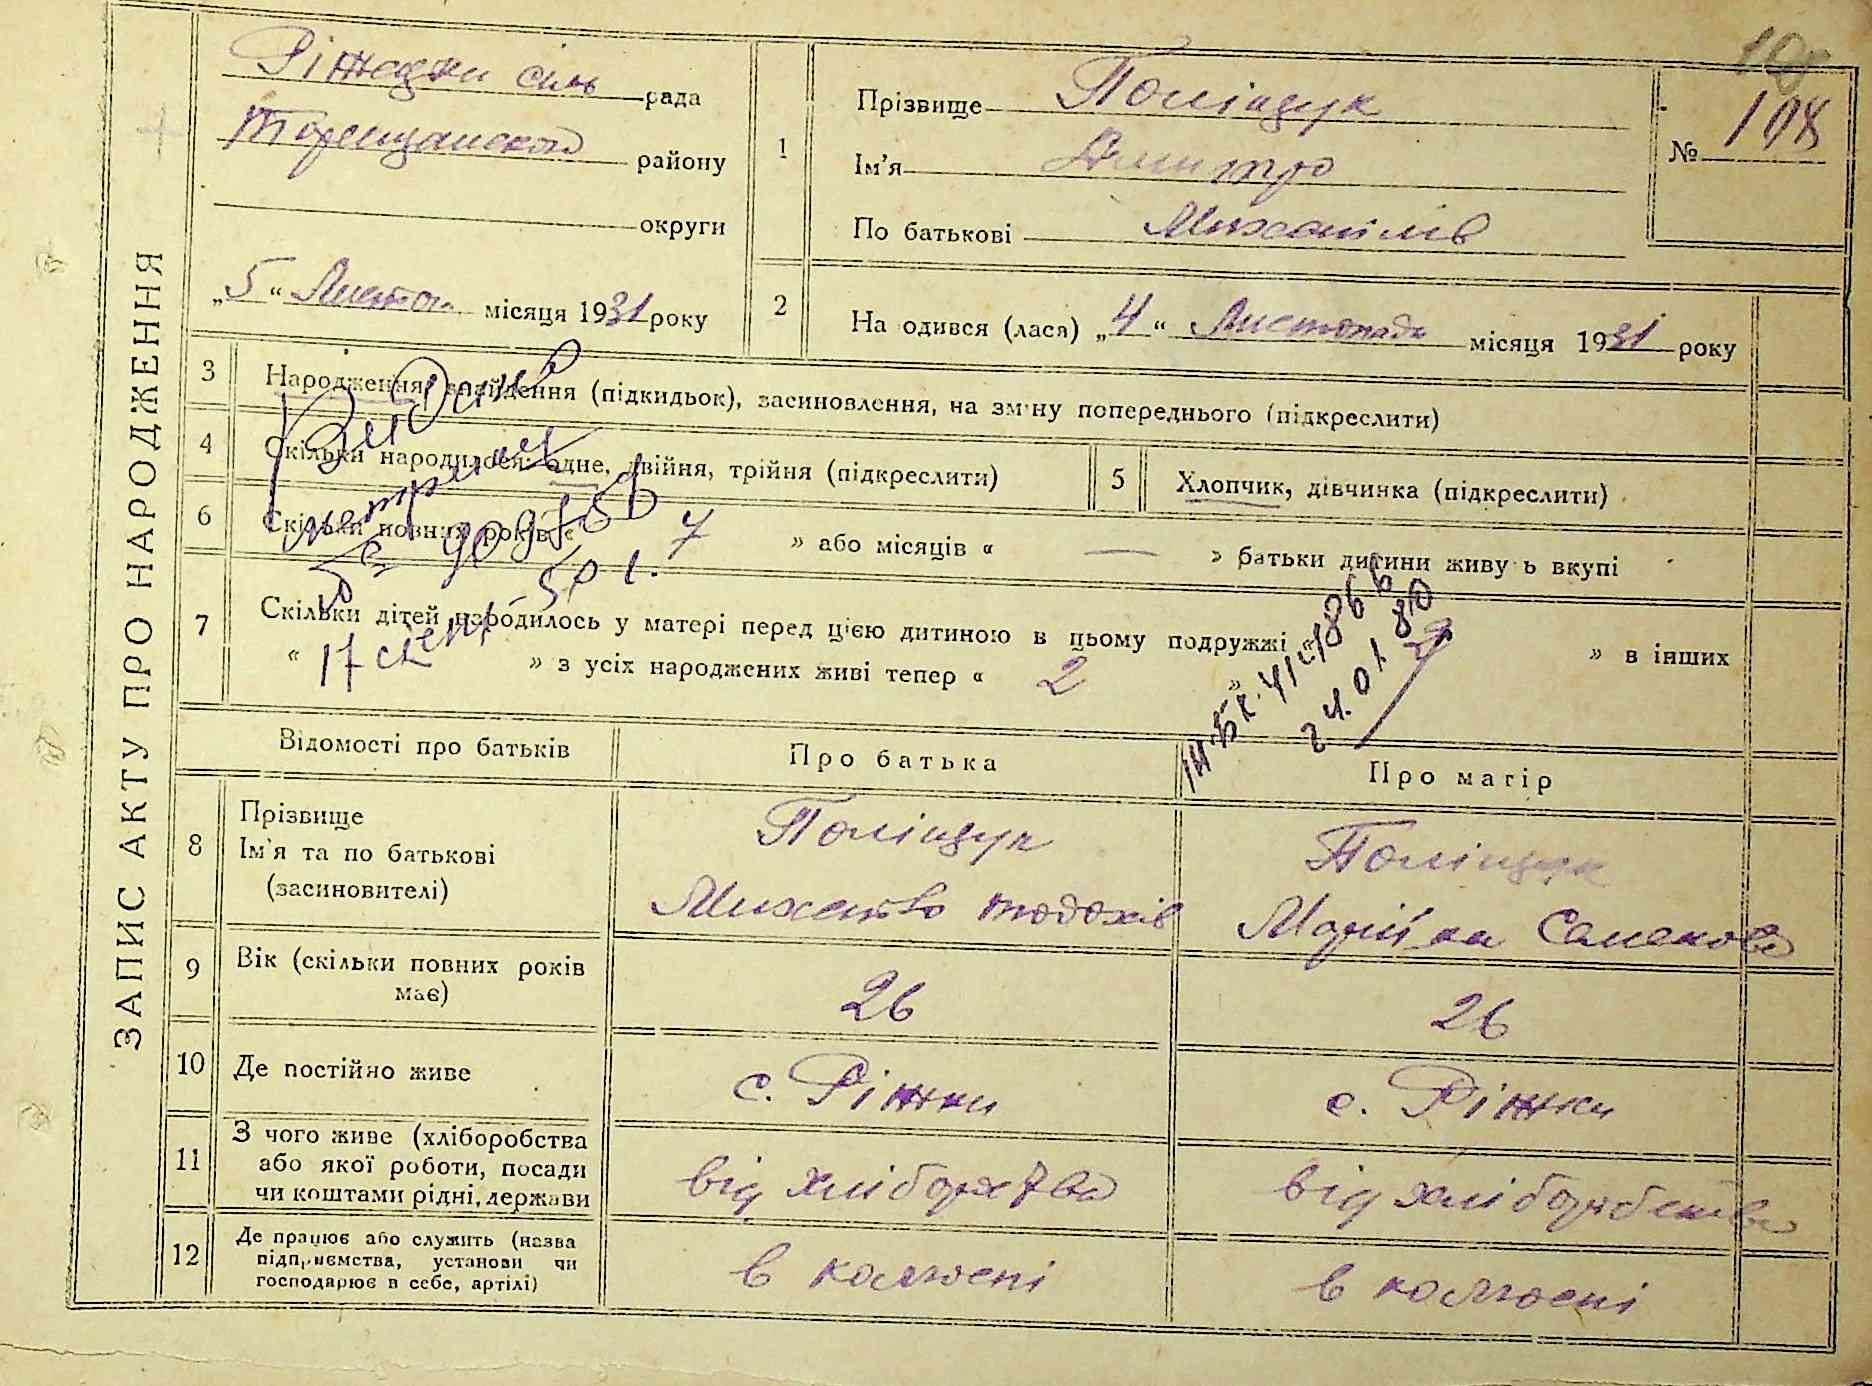 ЗАПИС АКТУ ПРО НАРОДЖЕННЯ
рада
району
округи
„5“ Листоп. місяця 1931 року
1
Прізвище Поліщук
Ім'я Дмитро
По батькові Михайлів
№ 108
2
На одився (лася) „4“ Листопада місяця 1931 року
3 Народження, знайдення (підкидьок), засиновлення, на зміну попереднього (підкреслити)
4 Скільки народилося: одне, двійня, трійня (підкреслити)
5 Хлопчик, дівчинка (підкреслити)
6 Скільки повних років « 7 » або місяців « — » батьки дитини живуть вкупі
7 Скільки дітей народилось у матері перед цією дитиною в цьому подружжі « » в інших
« » з усіх народжених живі тепер « 2 »
17 сент. 50 г.
24.01.80
Відомості про батьків
Про батька
Про матір
8 Прізвище
Ім'я та по батькові
(засиновителі)
Поліщук
Поліщук
Марійка
9 Вік (скільки повних років
має)
26
26
10 Де постійно живе
с. Ріжки
с. Ріжки
11 З чого живе (хліборобства
або якої роботи, посади
чи коштами рідні, держави
від
від хліборобства
12 Де працює або служить (назва
підприємства, установи чи
господарює в себе, артілі)
в колгоспі
в колгоспі